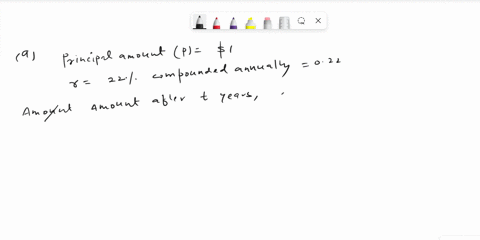 (a) Principal amount (P) = $1
r = 22%. compounded annually = 0.22
Amount Amount after t years,